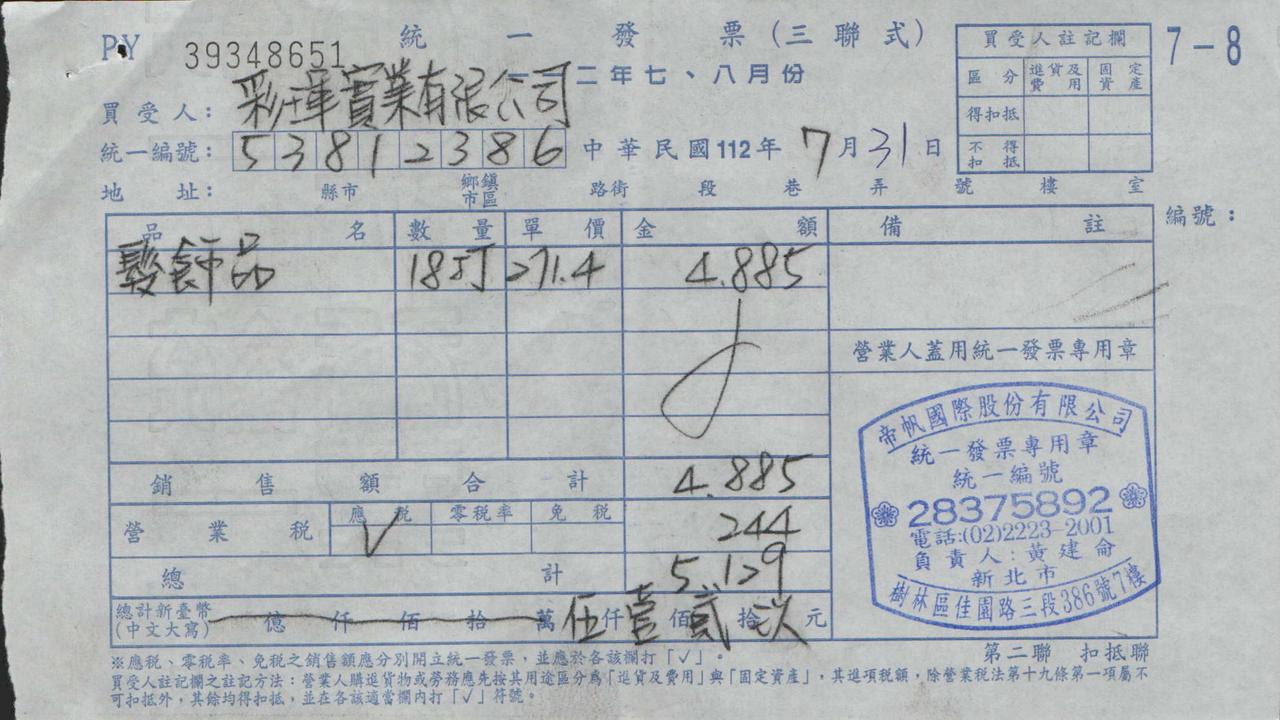 PY 39348651 統一發票(三聯式) 7-8
一一二年七、八月份
買受人: 彩琿實業有限公司
統一編號: 53812386 中華民國112年7月31日
地址: 縣市 鄉鎮市區 路街 段 巷 弄 號 樓 室
買受人註記欄
區分 進貨及費用 固定資產
得扣抵
不得扣抵
編號:
品名 數量 單價 金額 備註
髮飾品 18打 271.4 4.885
營業人蓋用統一發票專用章
銷售額合計 4.885
營業稅 應稅 零稅率 免稅 244
V
總計 5.129
總計新臺幣(中文大寫) 億 仟 佰 拾 萬 伍仟壹佰貳拾玖元
帝帆國際股份有限公司
統一發票專用章
統一編號
28375892
電話:(02)2223-2001
負責人:黃建侖
新北市
樹林區佳園路三段386號7樓
第二聯 扣抵聯
※應稅、零稅率、免稅之銷售額應分別開立統一發票,並應於各該欄打「√」。
買受人註記欄之註記方法:營業人購進貨物或勞務應先按其用途區分為「進貨及費用」與「固定資產」,其進項稅額,除營業稅法第十九條第一項屬不
可扣抵外,其餘均得扣抵,並在各該適當欄內打「√」符號。